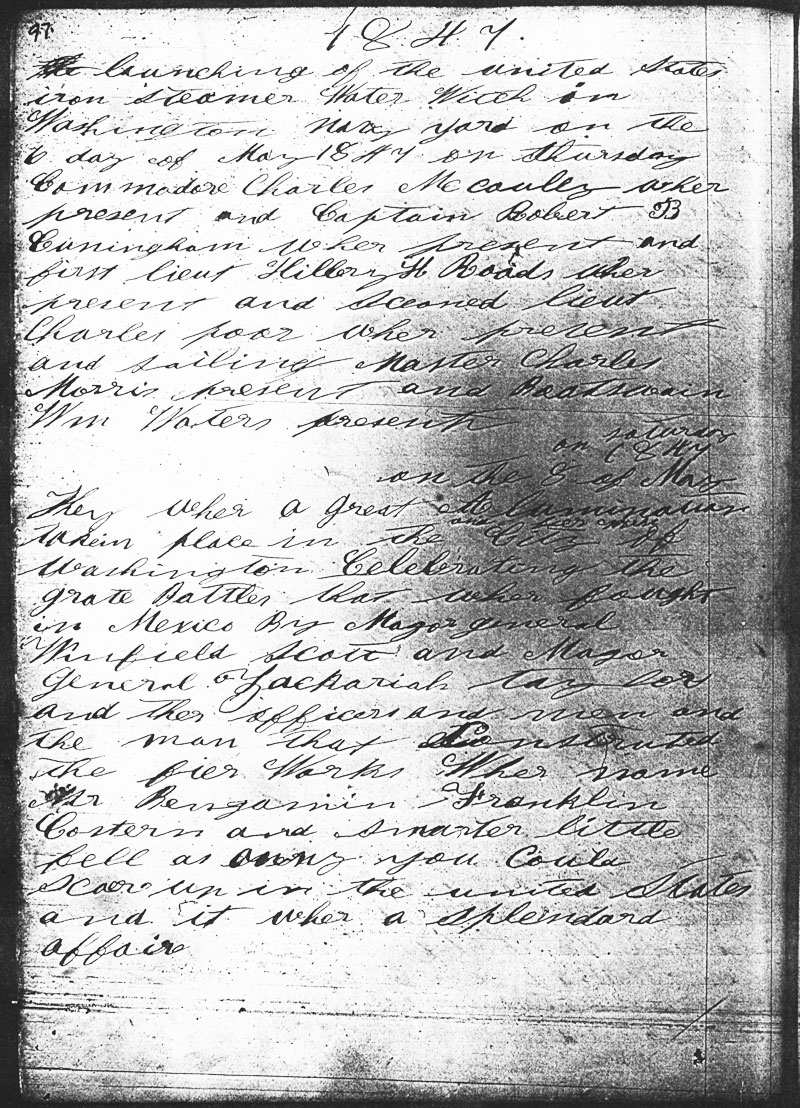 97.
1847.
the launching of the united states
iron steamer Water Witch in
Washington Navy yard on the
6 day of May 1847 on thursday
Commodore Charles Mccauley wher
present and Captain Robert B
Cuningham wher present and
first lieut Hillery H Roads wher
present and sceoned lieut
Charles poor wher present
and sailing Master Charles
Morris present and Boatswain
Wm Waters present
on saturday
1847
on the 8 of May
They wher a great illumination
and fier works
taken place in the City of
Washington Celebrating the
grate Battles that wher fought
in Mexico By Magor general
Winfield Scott and Magor
General Zackariah taylor
and ther officers and men and
the man that Constructed
the fier Works Wher name
Mr Bengamin Franklin
Costern and smarter little
fell as anny you Could
scear up in the united States
and it wher a splendard
affair